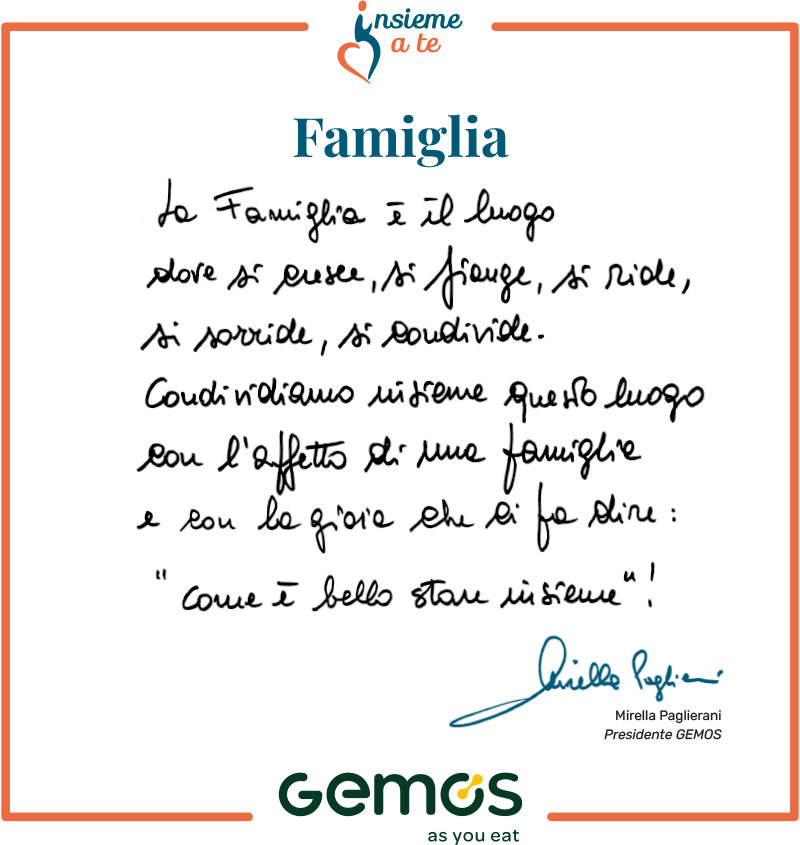 insieme
a te
Famiglia
La Famiglia è il luogo
dove si cresce, si piange, si ride,
si sorride, si condivide.
Condividiamo insieme questo luogo
con l'affetto di una famiglia
e con la gioia che ci fa dire:
"come è bello stare insieme"!
Mirella Paglierani
Mirella Paglierani
Presidente GEMOS
GEMOS
as you eat